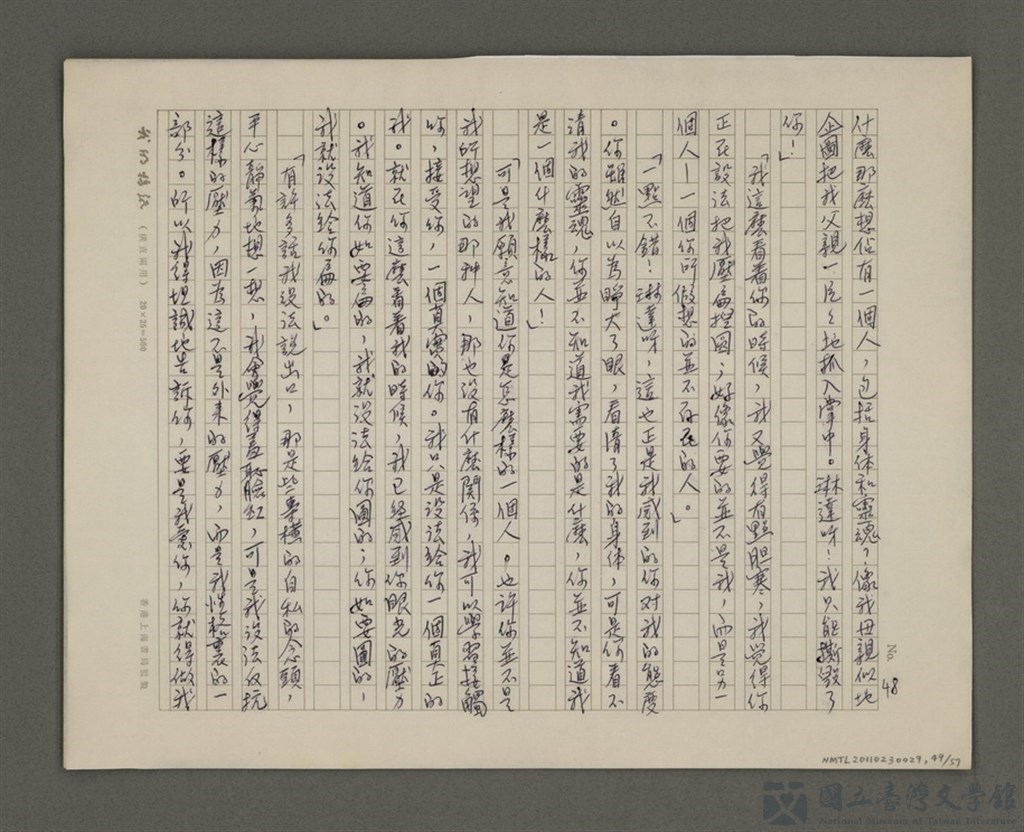 No. 48
什麼那麼想佔有一個人,包括身体和靈魂,像我母親似地
企圖把我父親一片片地抓入掌中。琳達呀!我只能撕毀了
你!」
「我這麼看着你的時候,我又覺得有點胆寒,我覺得你
正在設法把我壓扁捏圓;好像你要的並不是我,而是另一
個人—一個你所假想的並不存在的人。」
「一點不錯!琳達呀,這也正是我感到的你對我的態度
。你雖然自以為睜大了眼,看清了我的身体,可是你看不
清我的靈魂,你並不知道我需要的是什麼,你並不知道我
是一個什麼樣的人!」
「可是我願意知道你是怎麼樣的一個人。也許你並不是
我所想望的那种人,那也沒有什麼関係,我可以學習接觸
你,接受你,一個真實的你。我只是設法給你一個真正的
我。就在你這麼看着我的時候,我已経感到你眼光的壓力
。我知道你如要扁的,我就設法給你圓的;你如要圓的,
我就設法給你扁的。」
「有許多話我沒法說出口,那是些專橫的自私的念頭,
平心靜氣地想一想,我會覺得羞恥臉紅,可是我沒法反抗
這樣的壓力,因為這不是外来的壓力,而是我性格裏的一
部分。所以我得坦誠地告訴你,要是我愛你,你就得做我
20×25=500
香港上海書局監製
NMTL20110230029, 49/57
國立臺灣文學館
National Museum of Taiwan Literature